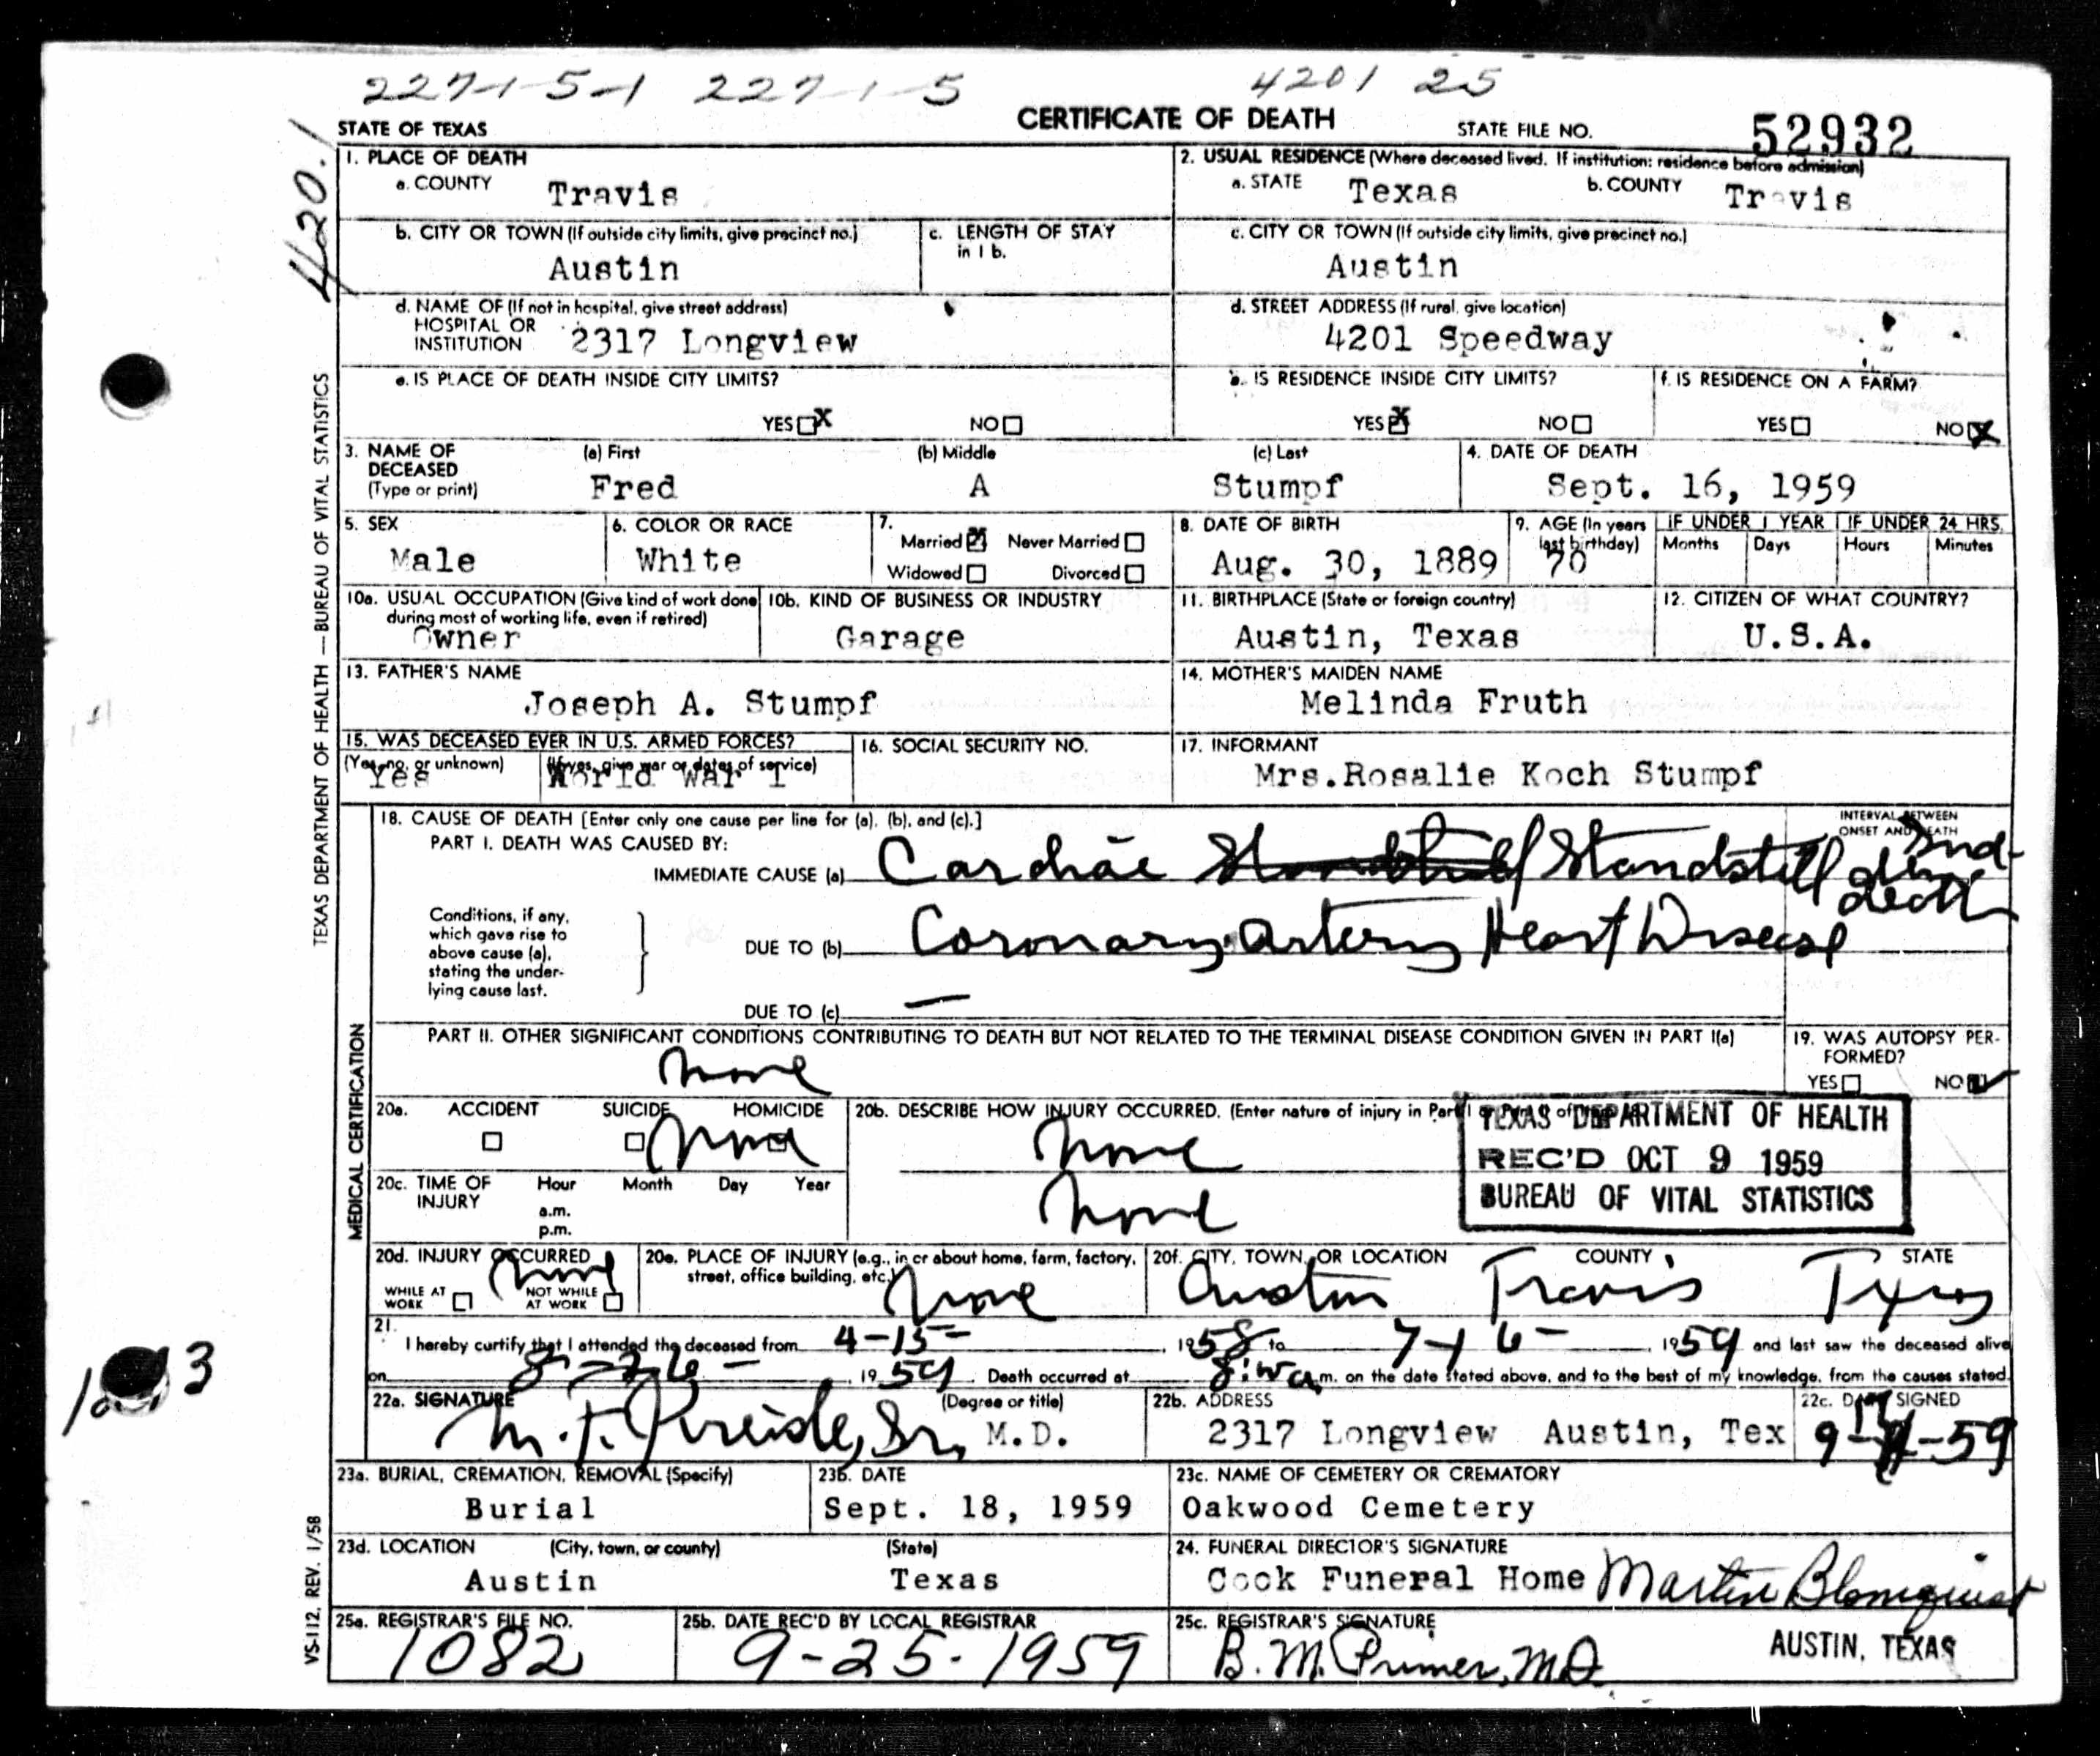 227-1-5-1 227-1-5 4201 25
STATE OF TEXAS CERTIFICATE OF DEATH STATE FILE NO. 52932
420.1
TEXAS DEPARTMENT OF HEALTH — BUREAU OF VITAL STATISTICS
1. PLACE OF DEATH
a. COUNTY Travis
2. USUAL RESIDENCE (Where deceased lived. If institution: residence before admission)
a. STATE Texas b. COUNTY Travis
b. CITY OR TOWN (If outside city limits, give precinct no.)
Austin
c. LENGTH OF STAY
in 1 b.
c. CITY OR TOWN (If outside city limits, give precinct no.)
Austin
d. NAME OF (If not in hospital, give street address)
HOSPITAL OR
INSTITUTION 2317 Longview
d. STREET ADDRESS (If rural, give location)
4201 Speedway
e. IS PLACE OF DEATH INSIDE CITY LIMITS?
YES X NO
e. IS RESIDENCE INSIDE CITY LIMITS?
YES X NO
f. IS RESIDENCE ON A FARM?
YES NO X
3. NAME OF
DECEASED
(Type or print)
(a) First (b) Middle (c) Last
Fred A Stumpf
4. DATE OF DEATH
Sept. 16, 1959
5. SEX
Male
6. COLOR OR RACE
White
7.
Married X Never Married
Widowed Divorced
8. DATE OF BIRTH
Aug. 30, 1889
9. AGE (In years
last birthday)
70
IF UNDER 1 YEAR IF UNDER 24 HRS.
Months Days Hours Minutes
10a. USUAL OCCUPATION (Give kind of work done
during most of working life, even if retired)
Owner
10b. KIND OF BUSINESS OR INDUSTRY
Garage
11. BIRTHPLACE (State or foreign country)
Austin, Texas
12. CITIZEN OF WHAT COUNTRY?
U.S.A.
13. FATHER'S NAME
Joseph A. Stumpf
14. MOTHER'S MAIDEN NAME
Melinda Fruth
15. WAS DECEASED EVER IN U.S. ARMED FORCES?
(Yes, no, or unknown) (If yes, give war or dates of service)
Yes World War I
16. SOCIAL SECURITY NO.
17. INFORMANT
Mrs.Rosalie Koch Stumpf
MEDICAL CERTIFICATION
18. CAUSE OF DEATH [Enter only one cause per line for (a), (b), and (c).]
PART I. DEATH WAS CAUSED BY:
INTERVAL BETWEEN
ONSET AND DEATH
IMMEDIATE CAUSE (a) Cardiac Standstill
death
Conditions, if any,
which gave rise to
above cause (a),
stating the under-
lying cause last.
DUE TO (b) Coronary artery Heart Disease
DUE TO (c) —
PART II. OTHER SIGNIFICANT CONDITIONS CONTRIBUTING TO DEATH BUT NOT RELATED TO THE TERMINAL DISEASE CONDITION GIVEN IN PART I(a)
none
19. WAS AUTOPSY PER-
FORMED?
YES NO ✓
20a. ACCIDENT SUICIDE HOMICIDE
none
20b. DESCRIBE HOW INJURY OCCURRED. (Enter nature of injury in Part I
none
TEXAS DEPARTMENT OF HEALTH
REC'D OCT 9 1959
BUREAU OF VITAL STATISTICS
20c. TIME OF
INJURY
Hour Month Day Year
a.m.
p.m.
none
20d. INJURY OCCURRED
none
WHILE AT
WORK
NOT WHILE
AT WORK
20e. PLACE OF INJURY (e.g., in or about home, farm, factory,
street, office building, etc.)
none
20f. CITY, TOWN, OR LOCATION COUNTY STATE
Austin Travis Texas
21.
I hereby certify that I attended the deceased from 4-15- , 1958 to 7-16- , 1959 and last saw the deceased alive
on 8-26- , 1959. Death occurred at m. on the date stated above, and to the best of my knowledge, from the causes stated.
22a. SIGNATURE (Degree or title)
M. F. Kreisle, Sr., M.D.
22b. ADDRESS
2317 Longview Austin, Tex
22c. DATE SIGNED
9- -59
10 3
23a. BURIAL, CREMATION, REMOVAL (Specify)
Burial
23b. DATE
Sept. 18, 1959
23c. NAME OF CEMETERY OR CREMATORY
Oakwood Cemetery
23d. LOCATION (City, town, or county) (State)
Austin Texas
24. FUNERAL DIRECTOR'S SIGNATURE
Cook Funeral Home Martin Blomquist
25a. REGISTRAR'S FILE NO.
1082
25b. DATE REC'D BY LOCAL REGISTRAR
9-25-1959
25c. REGISTRAR'S SIGNATURE
B. M. Primer, M.D. AUSTIN, TEXAS
VS-112, REV. 1/58